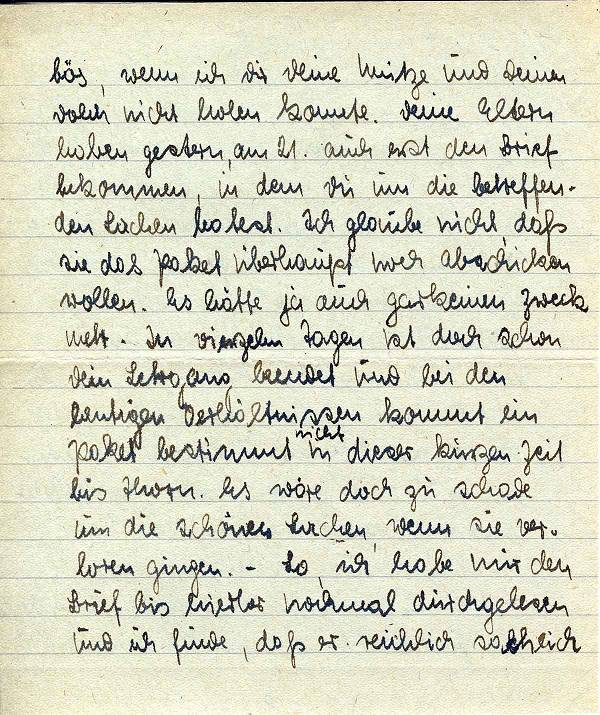 bös, wenn ich dir deine Mütze und deinen
Dolch nicht holen konnte. Deine Eltern
haben gestern, am 21. auch erst den Brief
bekommen, in dem du um die betreffen-
den Sachen batest. Ich glaube nicht daß
sie das Paket überhaupt noch abschicken
wollen. Es hätte ja auch garkeinen Zweck
mehr. In vierzehn Tagen ist doch schon
dein Lehrgang beendet und bei den
heutigen Verhältnissen kommt ein
Paket bestimmt nicht in dieser kurzen Zeit
bis Thorn. Es wäre doch zu schade
um die schönen Sachen, wenn sie ver-
loren gingen. - So, ich habe mir den
Brief bis hierher nochmal durchgelesen
und ich finde, daß er reichlich sachlich